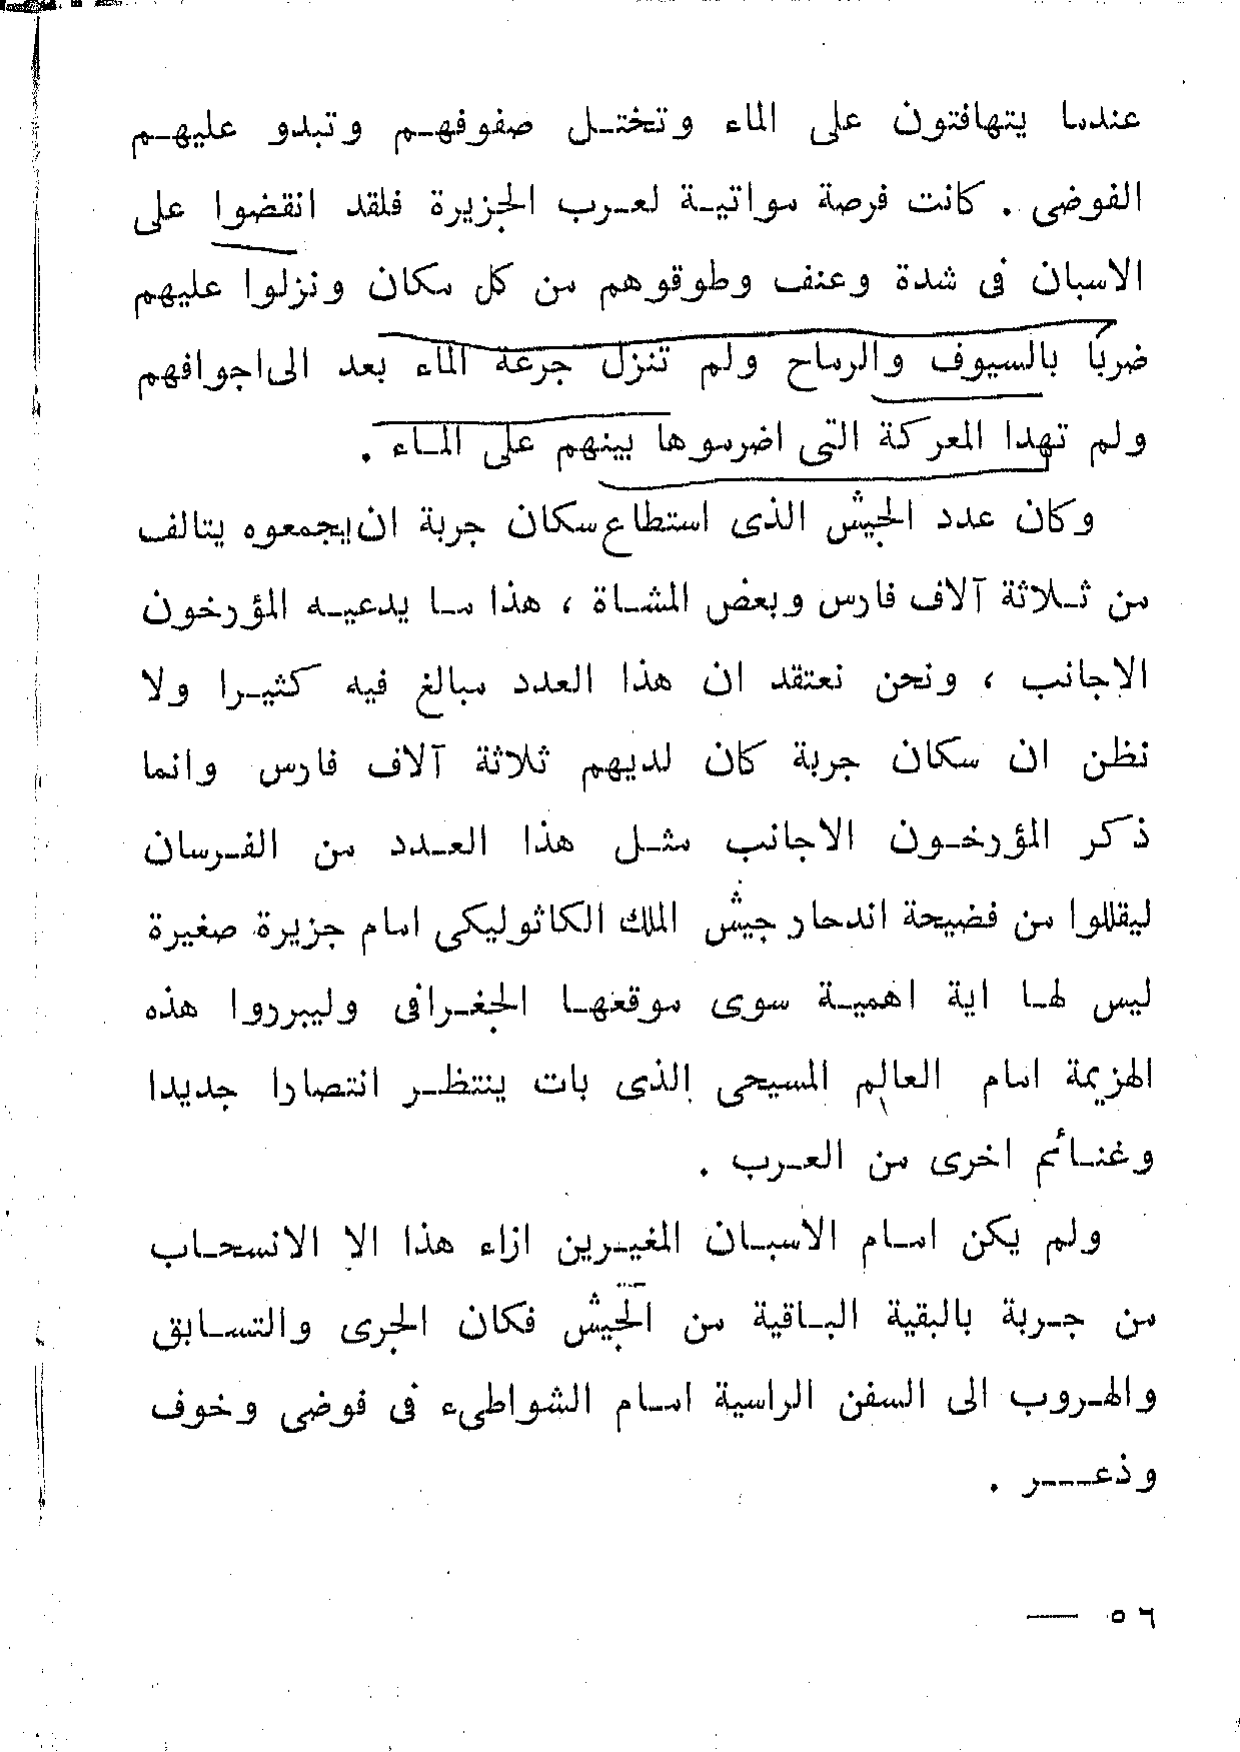 عندما يتهافتون على الماء وتختل صفوفهم وتبدو عليهم
الفوضى . كانت فرصة مواتية لعرب الجزيرة فلقد انقضوا على
الاسبان فى شدة وعنف وطوقوهم من كل مكان ونزلوا عليهم
ضربا بالسيوف والرماح ولم تنزل جرعة الماء بعد الى اجوافهم
ولم تهدا المعركة التى اضرموها بينهم على الماء .
وكان عدد الجيش الذى استطاع سكان جربة ان يجمعوه يتالف
من ثلاثة آلاف فارس وبعض المشاة ، هذا ما يدعيه المؤرخون
الاجانب ، ونحن نعتقد ان هذا العدد مبالغ فيه كثيرا ولا
نظن ان سكان جربة كان لديهم ثلاثة آلاف فارس وانما
ذكر المؤرخون الاجانب مثل هذا العدد من الفرسان
ليقللوا من فضيحة اندحار جيش الملك الكاثوليكى امام جزيرة صغيرة
ليس لها اية اهمية سوى موقعها الجغرافى وليبرروا هذه
الهزيمة امام العالم المسيحى الذى بات ينتظر انتصارا جديدا
وغنائم اخرى من العرب .
ولم يكن امام الاسبان المغيرين ازاء هذا الا الانسحاب
من جربة بالبقية الباقية من الجيش فكان الجرى والتسابق
والهروب الى السفن الراسية امام الشواطىء فى فوضى وخوف
وذعر .
٥٦ —